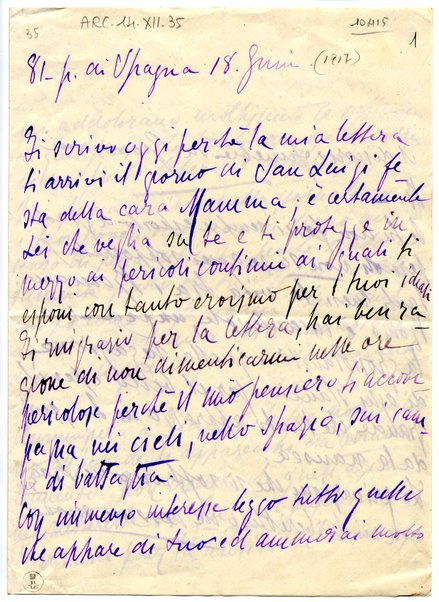 ARC. 14. XII. 35
10415
35
1
81- p. di Spagna 18. (1917)
Ti scrivo oggi perchè la mia lettera
ti arrivi il giorno di San Luigi fe
sta della cara Mamma. è certamente
Lei che veglia su te e ti protegge in
mezzo ai pericoli continui ai quali ti
esponi con tanto eroismo per i tuoi ideali
Ti ringrazio per la lettera, hai ben ra-
gione di non dimenticarmi nelle ore
pericolose perchè il mio pensiero ti accom
pagna nei cieli, nello spazio, sui cam-
pi di battaglia.
Con immenso interesse leggo tutto quello
che appare di tuo ed ammirai molto